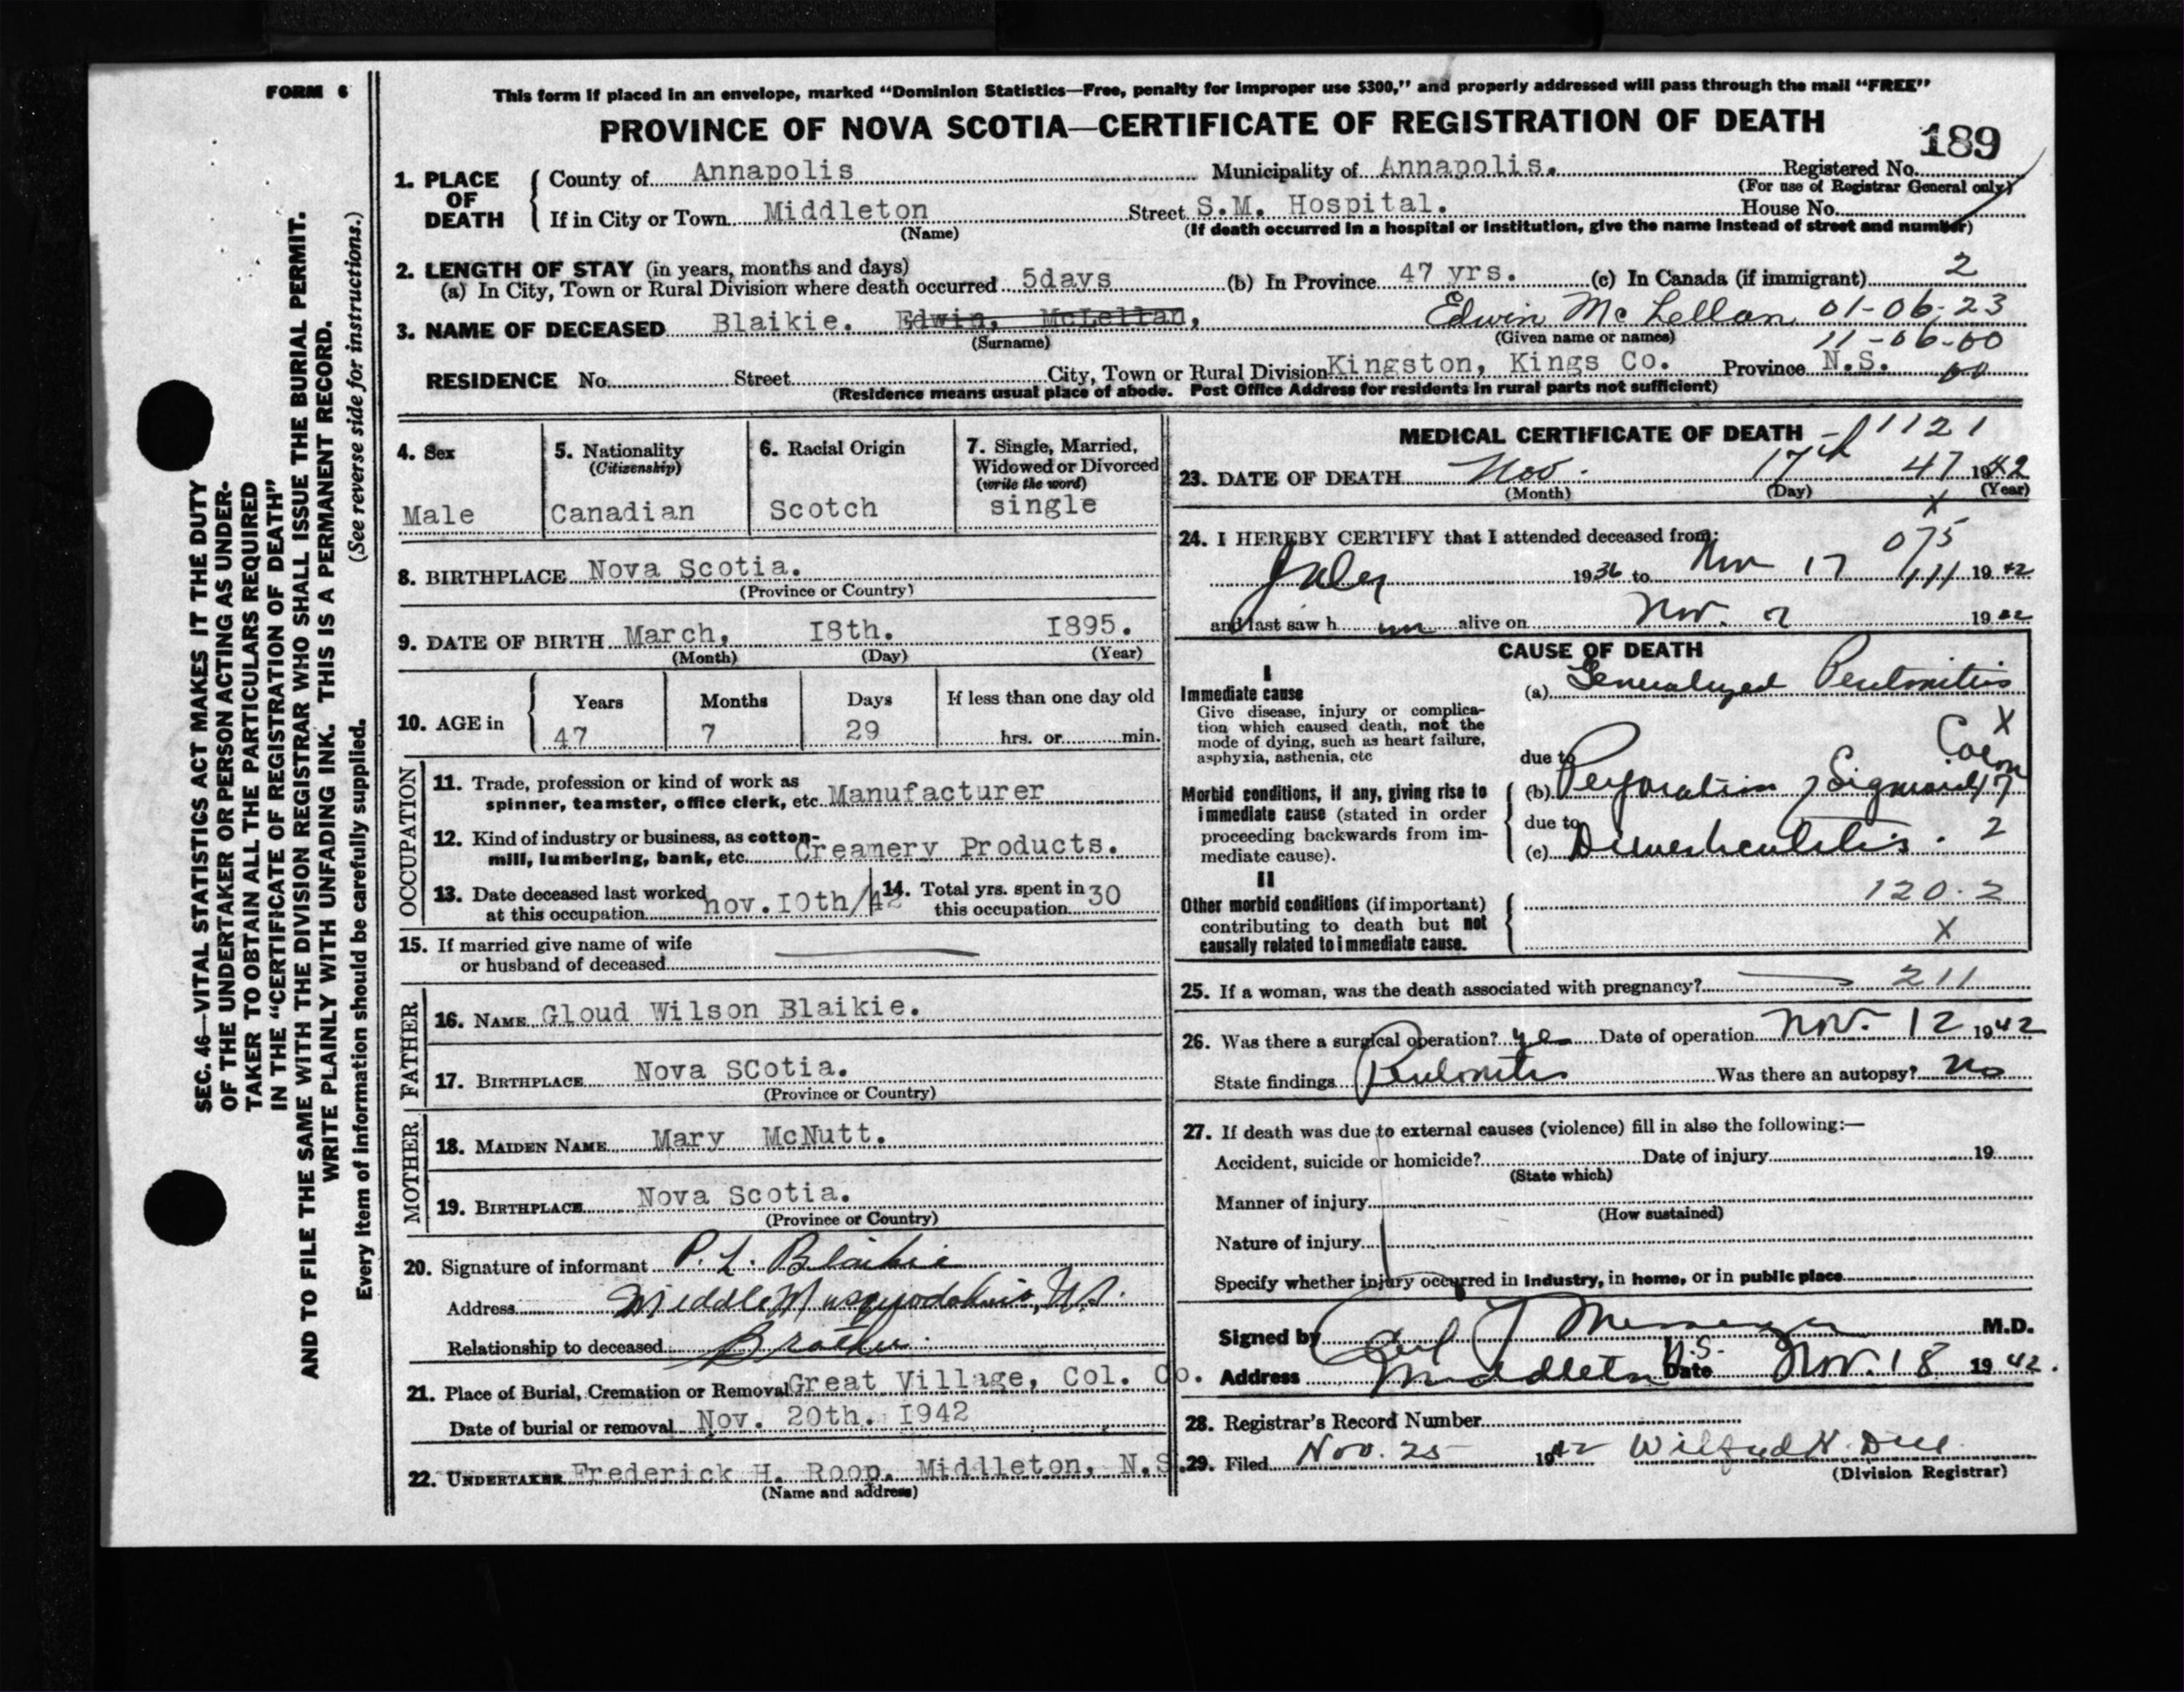 FORM 6
This form if placed in an envelope, marked “Dominion Statistics—Free, penalty for improper use $300,” and properly addressed will pass through the mail “FREE”
PROVINCE OF NOVA SCOTIA—CERTIFICATE OF REGISTRATION OF DEATH
189
1. PLACE OF DEATH County of Annapolis Municipality of Annapolis. Registered No.
(For use of Registrar General only)
If in City or Town Middleton Street S.M. Hospital. House No.
(Name) (If death occurred in a hospital or institution, give the name instead of street and number)
2. LENGTH OF STAY (in years, months and days)
(a) In City, Town or Rural Division where death occurred 5days (b) In Province 47 yrs. (c) In Canada (if immigrant) 2
3. NAME OF DECEASED Blaikie. Edwin. McLellan, Edwin McLellan 01-06-23
(Surname) (Given name or names) 11-06-00
RESIDENCE No. Street City, Town or Rural Division Kingston, Kings Co. Province N.S. 60
(Residence means usual place of abode. Post Office Address for residents in rural parts not sufficient)
4. Sex
Male
5. Nationality
(Citizenship)
Canadian
6. Racial Origin
Scotch
7. Single, Married,
Widowed or Divorced
(write the word)
single
8. BIRTHPLACE Nova Scotia.
(Province or Country)
9. DATE OF BIRTH March, 18th. 1895.
(Month) (Day) (Year)
10. AGE in Years Months Days If less than one day old
47 7 29 hrs. or min.
OCCUPATION
11. Trade, profession or kind of work as
spinner, teamster, office clerk, etc. Manufacturer
12. Kind of industry or business, as cotton-
mill, lumbering, bank, etc. Creamery Products.
13. Date deceased last worked
at this occupation nov.10th/42
14. Total yrs. spent in
this occupation 30
15. If married give name of wife
or husband of deceased
FATHER
16. NAME Gloud Wilson Blaikie.
17. BIRTHPLACE Nova SCotia.
(Province or Country)
MOTHER
18. MAIDEN NAME Mary McNutt.
19. BIRTHPLACE Nova Scotia.
(Province or Country)
20. Signature of informant P. L. Blaikie
Address Middle Musquodoboit, N.S.
Relationship to deceased Brother
21. Place of Burial, Cremation or Removal Great Village, Col. Co.
Date of burial or removal Nov. 20th. 1942
22. UNDERTAKER Frederick H. Roop. Midlleton, N.S.
(Name and address)
MEDICAL CERTIFICATE OF DEATH 1121
23. DATE OF DEATH Nov. 17th 47 1942
(Month) (Day) (Year)
X
24. I HEREBY CERTIFY that I attended deceased from: 075
July 1936 to Nov 17 111 1942
and last saw h im alive on Nov. 1942
CAUSE OF DEATH
I
Immediate cause
Give disease, injury or complica-
tion which caused death, not the
mode of dying, such as heart failure,
asphyxia, asthenia, etc
(a) Generalized Peritonitis
X
due to
Morbid conditions, if any, giving rise to
immediate cause (stated in order
proceeding backwards from im-
mediate cause).
(b) Perforation of Sigmoid Colon 47
due to
(c) Diverticulitis. 2
II
Other morbid conditions (if important)
contributing to death but not
causally related to immediate cause.
120.2
X
25. If a woman, was the death associated with pregnancy? 211
26. Was there a surgical operation? yes Date of operation Nov. 12 1942
State findings Peritonitis Was there an autopsy? No
27. If death was due to external causes (violence) fill in also the following:—
Accident, suicide or homicide? Date of injury 19
(State which)
Manner of injury
(How sustained)
Nature of injury
Specify whether injury occurred in industry, in home, or in public place
Signed by Messenger M.D.
Address Middleton N.S. Date Nov. 18 1942.
28. Registrar's Record Number
29. Filed Nov. 25 1942 Wilfred H. Dill
(Division Registrar)
SEC. 46—VITAL STATISTICS ACT MAKES IT THE DUTY
OF THE UNDERTAKER OR PERSON ACTING AS UNDER-
TAKER TO OBTAIN ALL THE PARTICULARS REQUIRED
IN THE “CERTIFICATE OF REGISTRATION OF DEATH”
AND TO FILE THE SAME WITH THE DIVISION REGISTRAR WHO SHALL ISSUE THE BURIAL PERMIT.
WRITE PLAINLY WITH UNFADING INK. THIS IS A PERMANENT RECORD.
Every item of information should be carefully supplied. (See reverse side for instructions.)